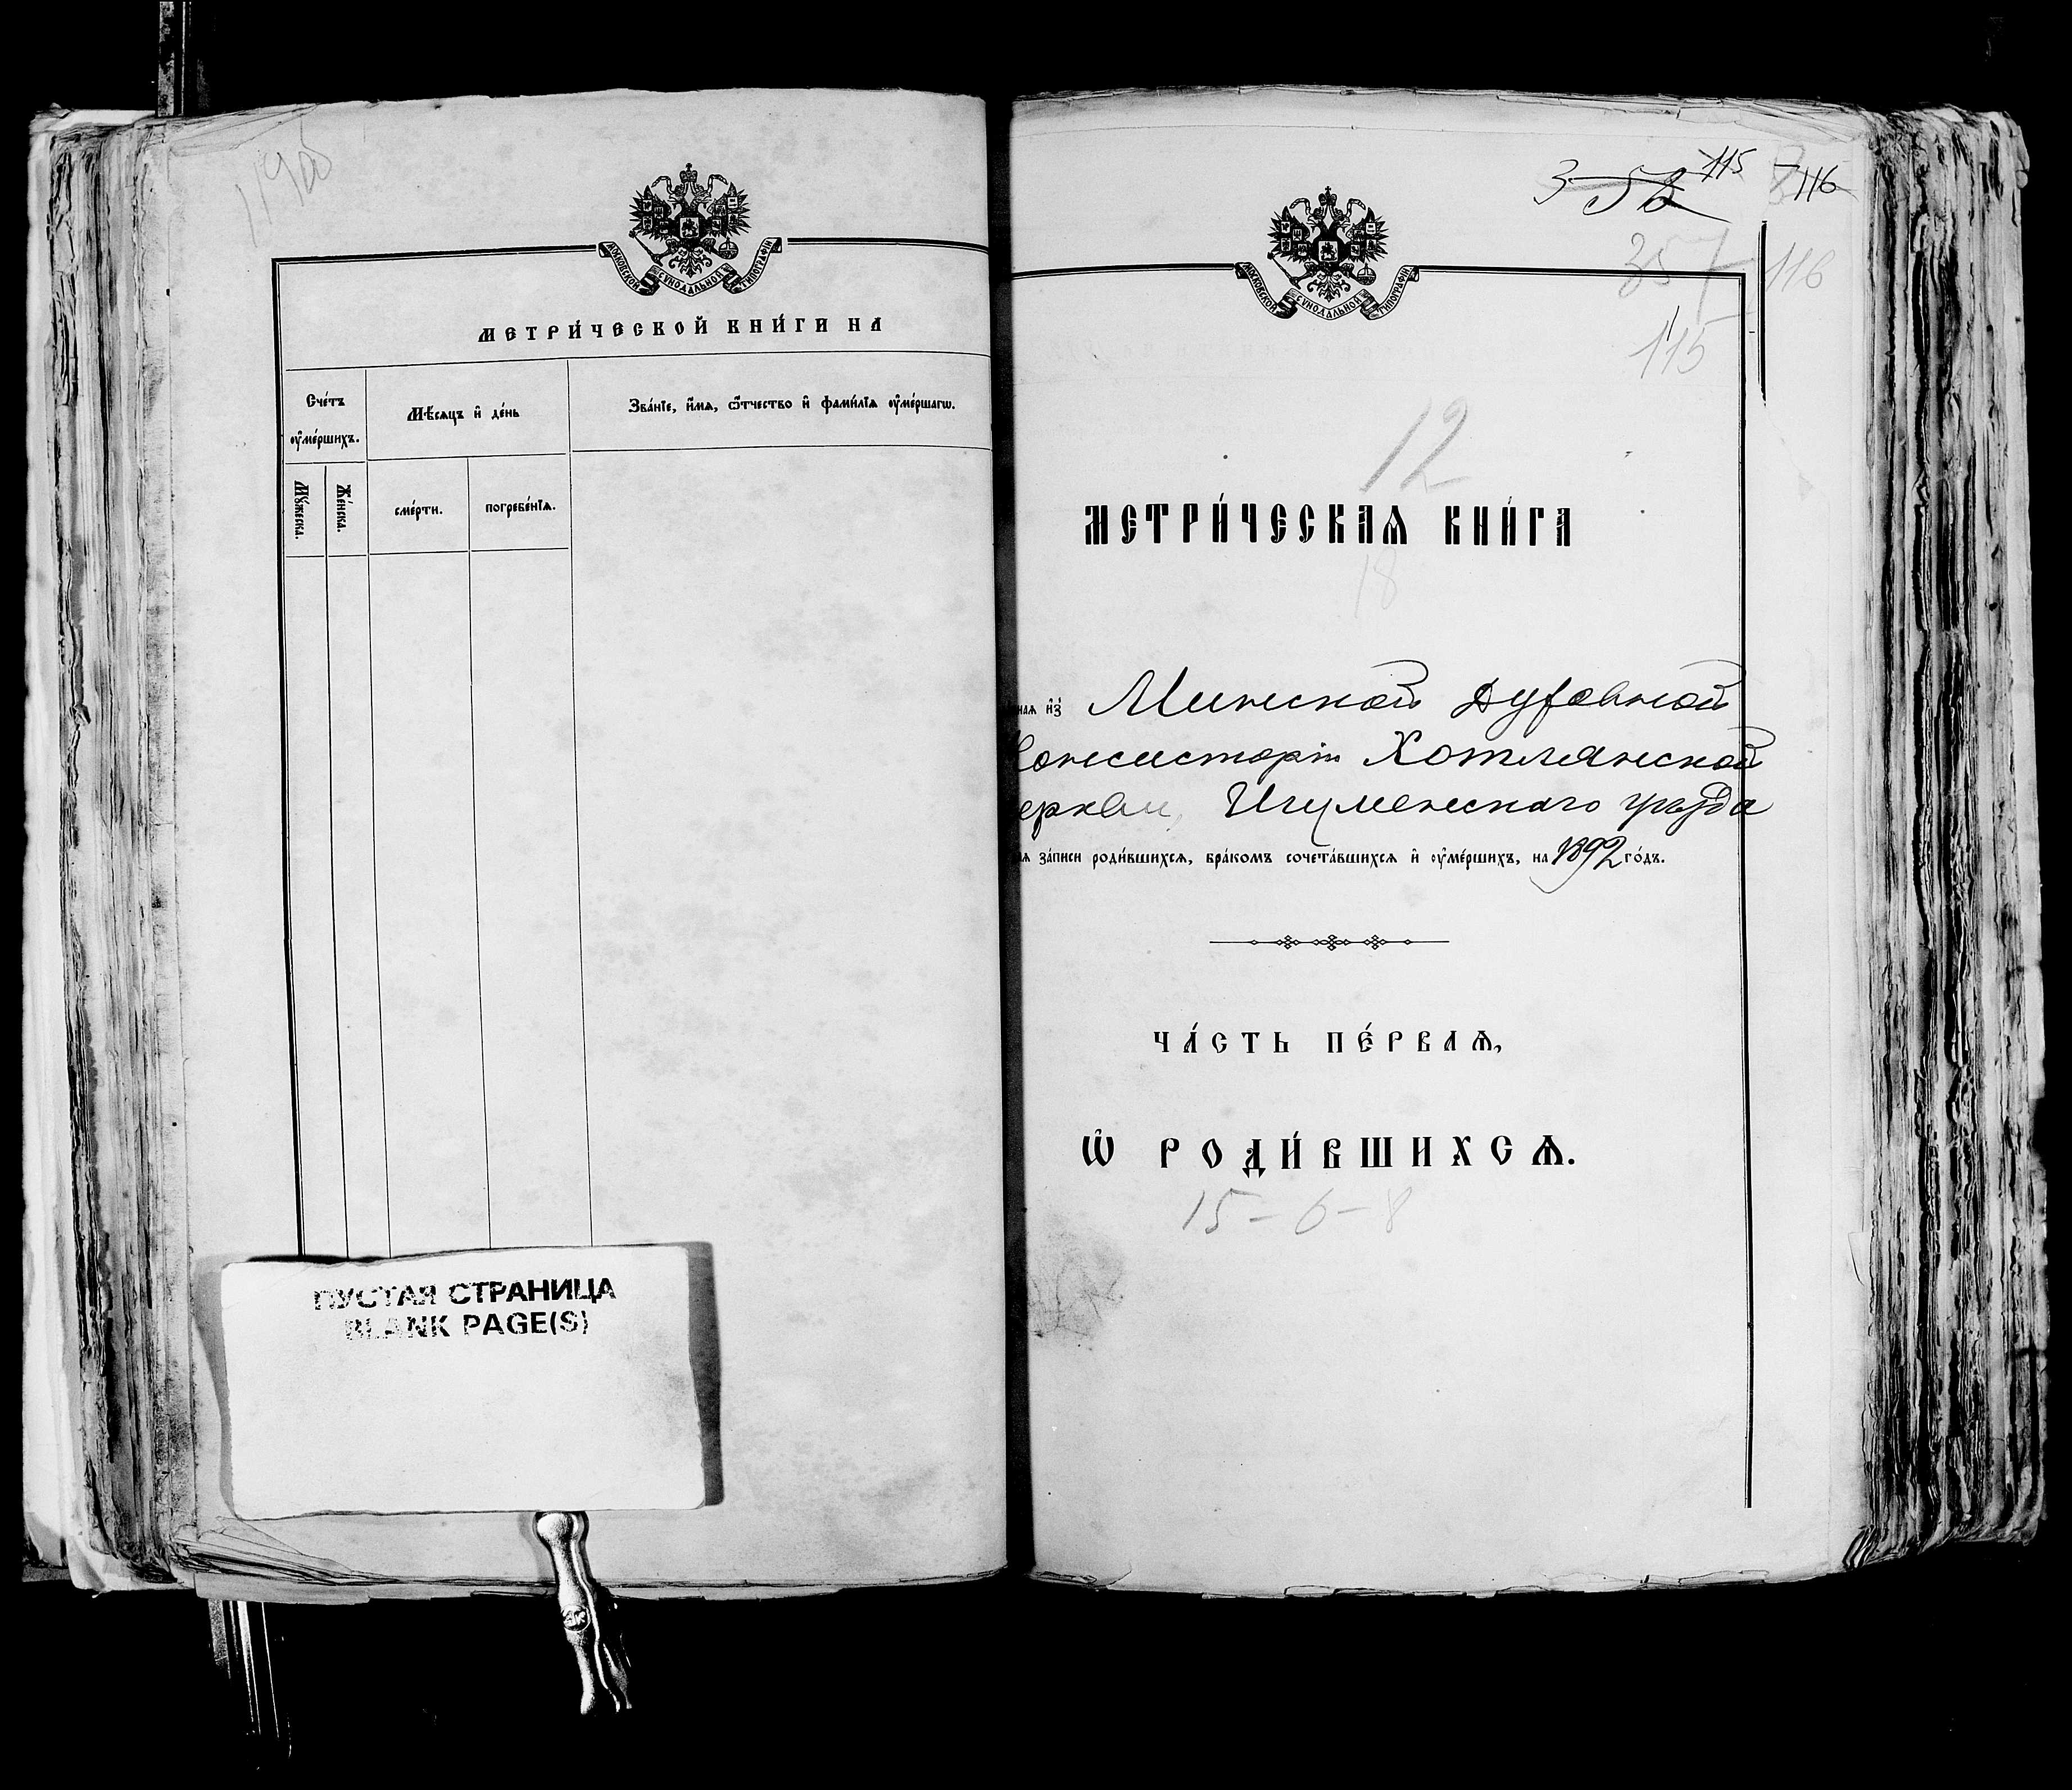 МОСКОВСКОЙ СѴНОДАЛЬНОЙ ТИПОГРАФІИ
МЕТРИ́ЧЕСКОЙ КНИ́ГИ НА
Сче́тъ ᲂу҆ме́ршихъ.
Мѣ́сѧцъ и҆ де́нь
Зва́нїе, и҆́мѧ, ѻ҆́тчество и҆ фами́лїѧ ᲂу҆ме́ршагѡ.
Мꙋ́жеска.
Же́нска.
сме́рти.
погребе́нїѧ.
ПУСТАЯ СТРАНИЦА
BLANK PAGE(S)
3 52 115 116
357 116
115
МОСКОВСКОЙ СѴНОДАЛЬНОЙ ТИПОГРАФІИ
12
МЕТРИ́ЧЕСКАѦ КНИ́ГА
18
наѧ и҆з̾ Минской Духовной
Консисторіи Хотлянской
еркви, Игуменскаго уѣзда
лѧ за́писи роди́вшихсѧ, бра́комъ сочета́вшихсѧ и҆ ᲂу҆ме́ршихъ, на 1892 го́дъ.
ЧА́СТЬ ПЕ́РВАѦ,
Ѡ҆ РОДИ́ВШИХСѦ.
15 - 6 - 8